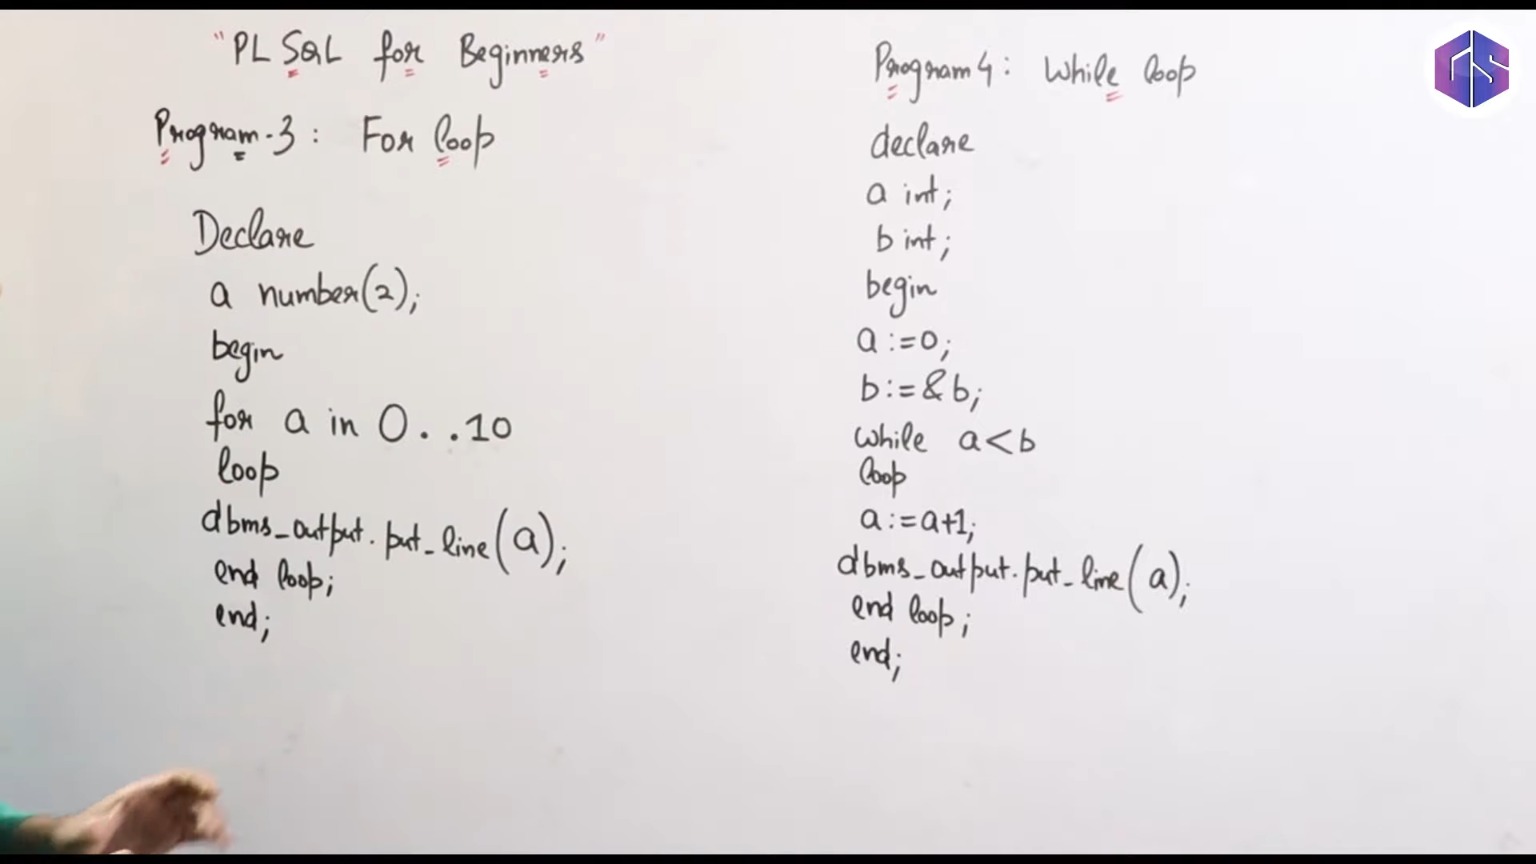 "PL SQL for Beginners"
Program-3: For loop
Declare
a number(2);
begin
for a in 0..10
loop
dbms_output.put_line(a);
end loop;
end;
Program 4: While loop
declare
a int;
b int;
begin
a:=0;
b:=&b;
while a<b
loop
a:=a+1;
dbms_output.put_line(a);
end loop;
end;